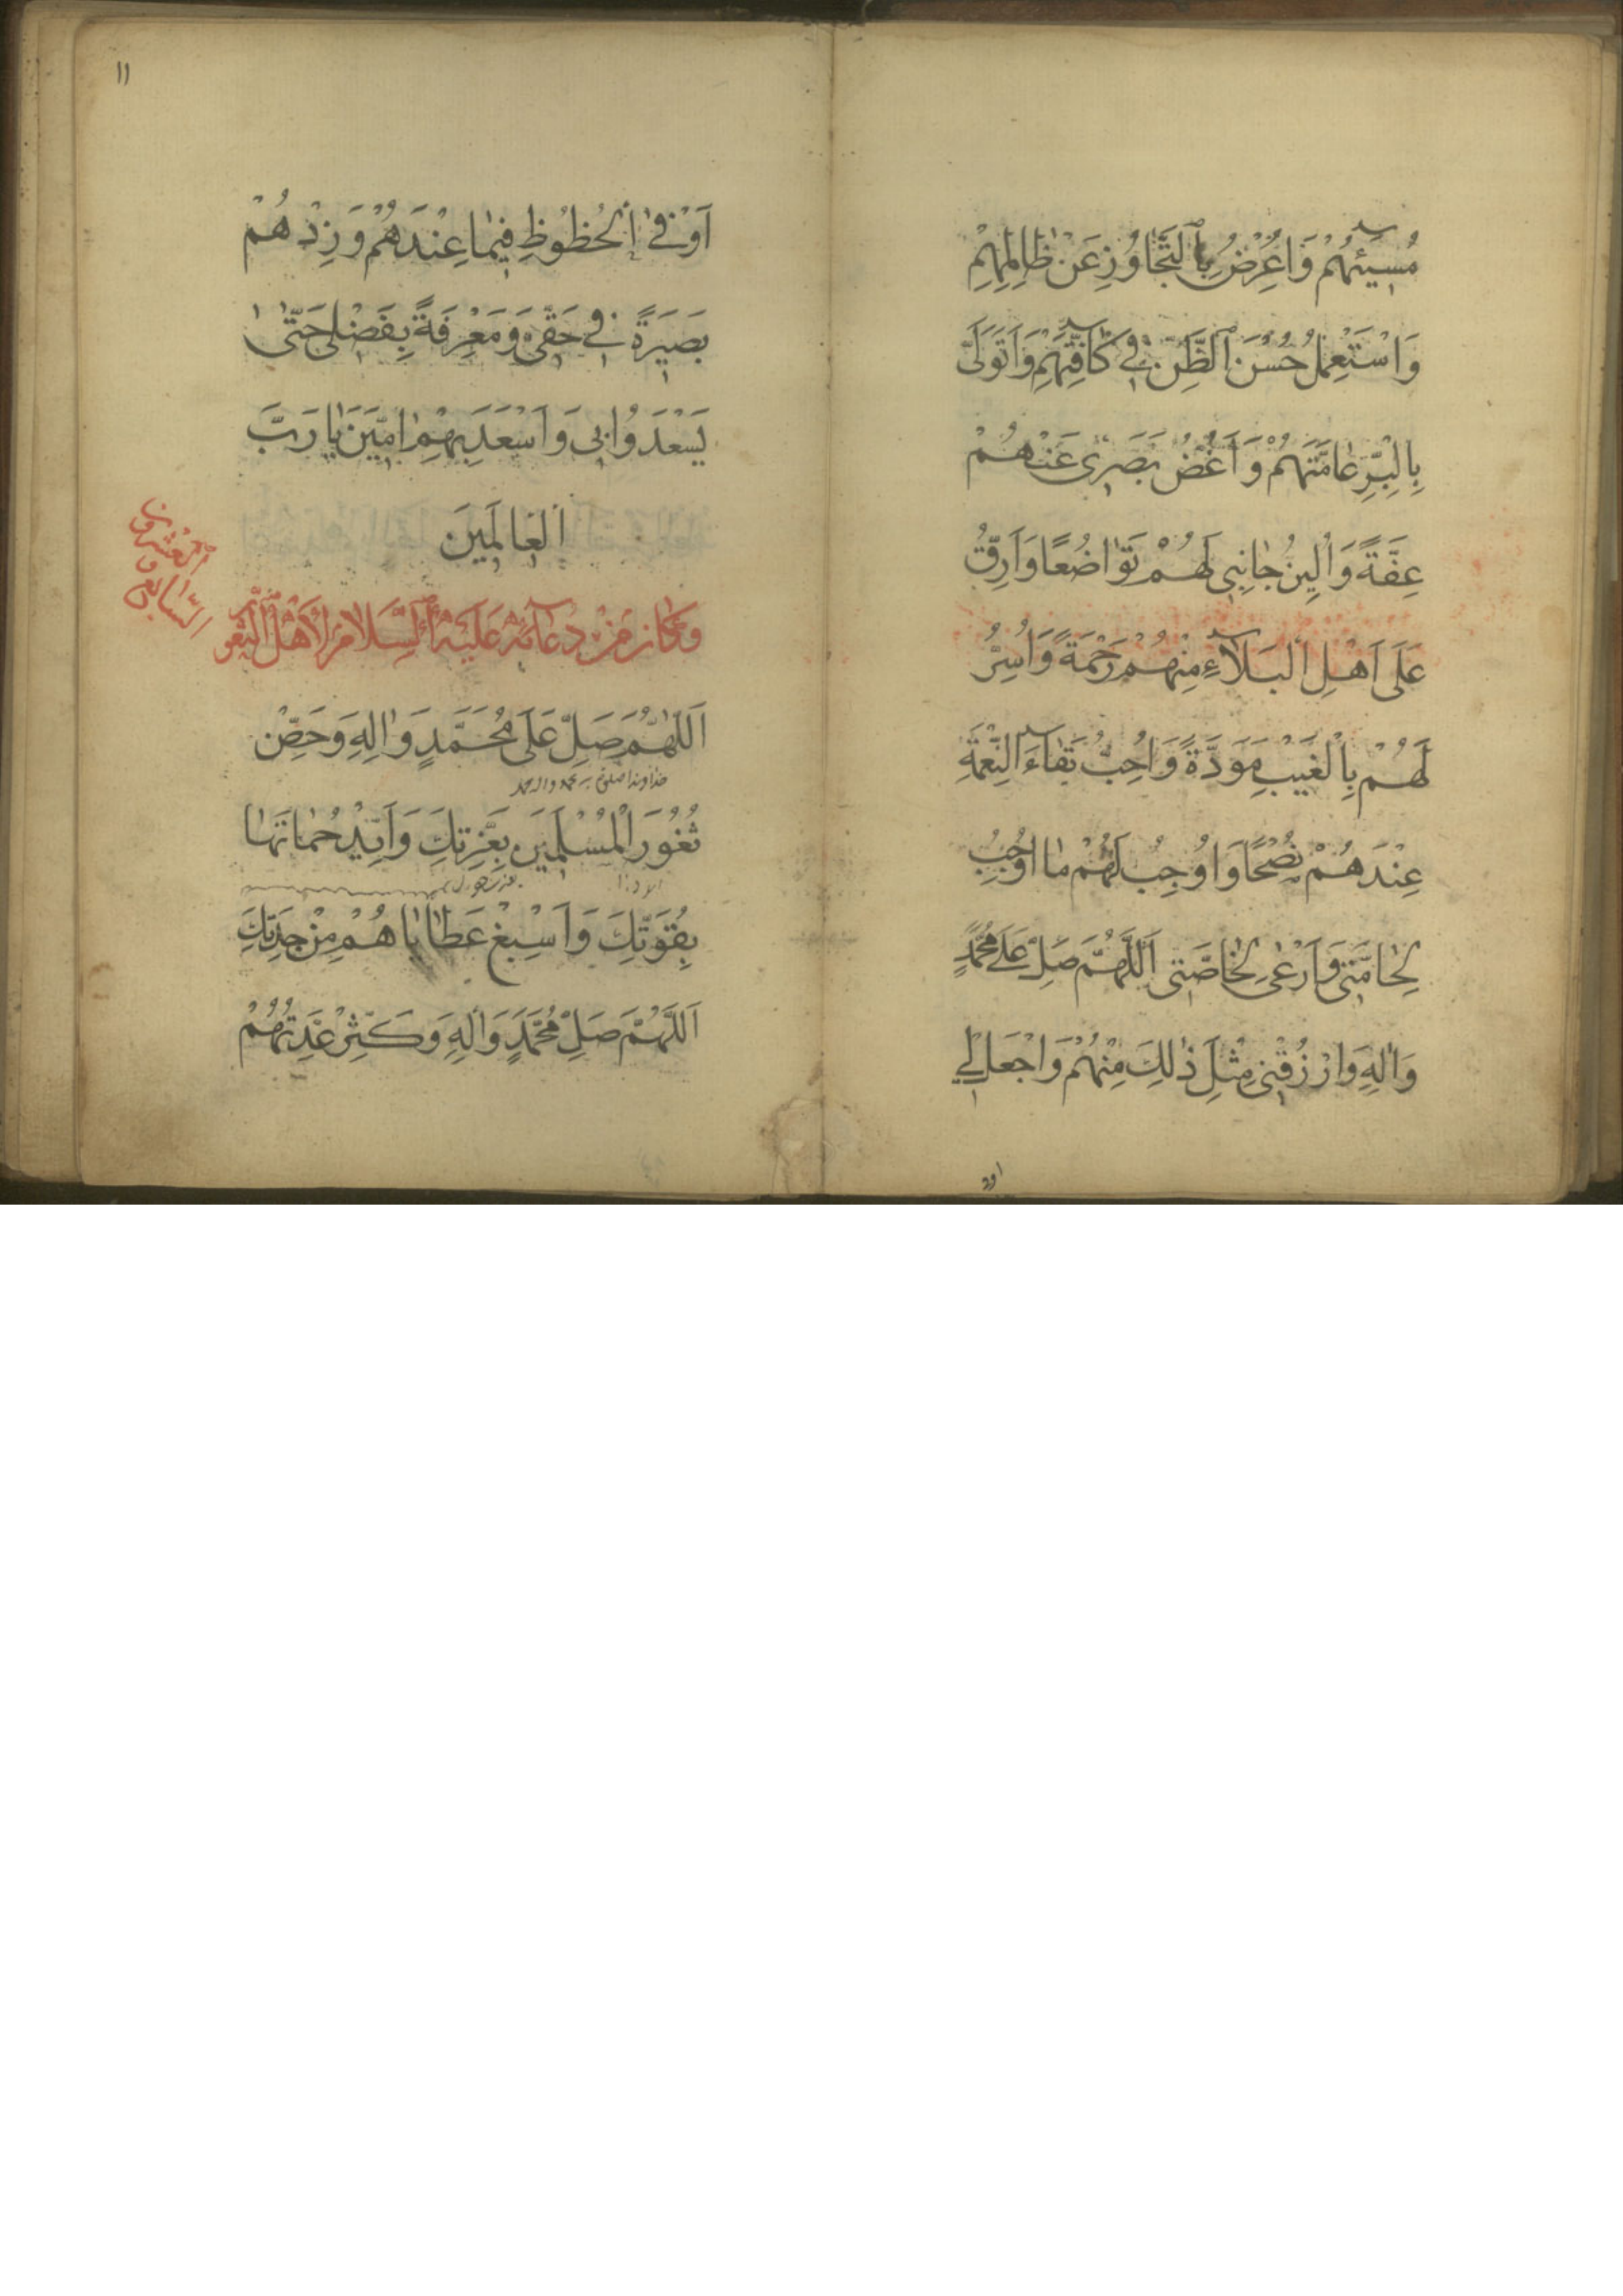 مُسِيئَهُمْ وَاُعْرِضُ بِالتَّجَاوُزِ عَنْ ظَالِمِهِمْ
وَاَسْتَعْمِلُ حُسْنَ الظَّنِّ فِي كَافَّتِهِمْ وَاَتَوَلَّى
بِالْبِرِّ عَامَّتَهُمْ وَاَغُضُّ بَصَرِي عَنْهُمْ
عِفَّةً وَاُلِينُ جَانِبِي لَهُمْ تَوَاضُعًا وَاَرِقُّ
عَلَى اَهْلِ الْبَلَآءِ مِنْهُمْ رَحْمَةً وَاُسِرُّ
لَهُمْ بِالْغَيْبِ مَوَدَّةً وَاُحِبُّ بَقَآءَ النِّعْمَةِ
عِنْدَهُمْ نُصْحًا وَاُوجِبُ لَهُمْ مَا اُوجِبُ
لِحَامَّتِي وَاَرْعَى لِخَاصَّتِي اَللَّهُمَّ صَلِّ عَلَى مُحَمَّدٍ
وَاٰلِهِ وَارْزُقْنِي مِثْلَ ذٰلِكَ مِنْهُمْ وَاجْعَلْ لِي
اوفى
١١
اَوْفَى الْحُظُوظِ فِيمَا عِنْدَهُمْ وَزِدْهُمْ
بَصِيَرَةً فِي حَقِّي وَمَعْرِفَةً بِفَضْلِي حَتَّى
يَسْعَدُوا بِي وَاَسْعَدَ بِهِمْ اٰمِيَنَ يَا رَبَّ
الْعَالَمِينَ
العشرون
السابع و
وَكَانَ مِنْ دُعَآئِهِ عَلَيْهِ السَّلَامُ لِاَهْلِ الثُّغُورِ
اَللّٰهُمَّ صَلِّ عَلَى مُحَمَّدٍ وَاٰلِهِ وَحَصِّنْ
ثُغُوَرَ الْمُسْلِمِيَنَ بِعِزَّتِكَ وَاَيِّدْ حُمَاتَهَا
بِقُوَّتِكَ وَاَسْبِغْ عَطَايَاهُمْ مِنْ جِدَتِكَ
اَللّٰهُمَّ صَلِّ مُحَمَّدٍ وَاٰلِهِ وَكَثِّرْ عِدَّتَهُمْ